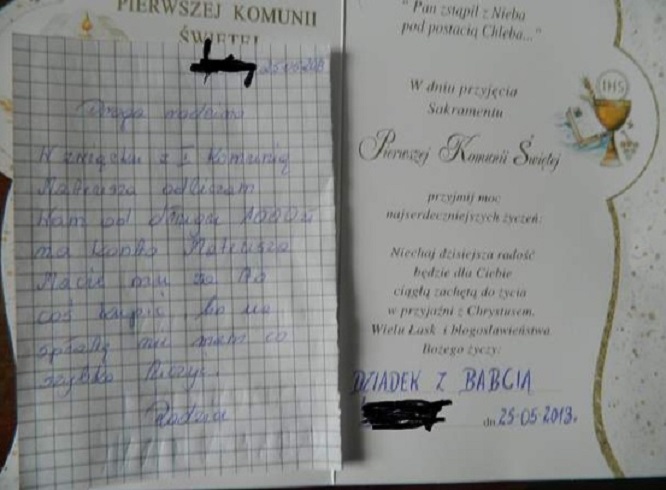 PIERWSZEJ KOMUNII
ŚWIĘTEJ
25.05.2013
Droga rodzino
W związku z I Komunią
Mateusza odliczam
Wam od długu 1000 zł
na konto Mateusza
Macie mu za to
coś kupić, bo na
spłatę nie mam co
szybko liczyć.
Radzia
"Pan zstąpił z Nieba
pod postacią Chleba..."
W dniu przyjęcia
Sakramentu
Pierwszej Komunii Świętej
przyjmij moc
najserdeczniejszych życzeń:
Niechaj dzisiejsza radość
będzie dla Ciebie
ciągłą zachętą do życia
w przyjaźni z Chrystusem.
Wielu Łask i błogosławieństwa
Bożego życzy:
DZIADEK Z BABCIĄ
dn. 25-05-2013r.
IHS